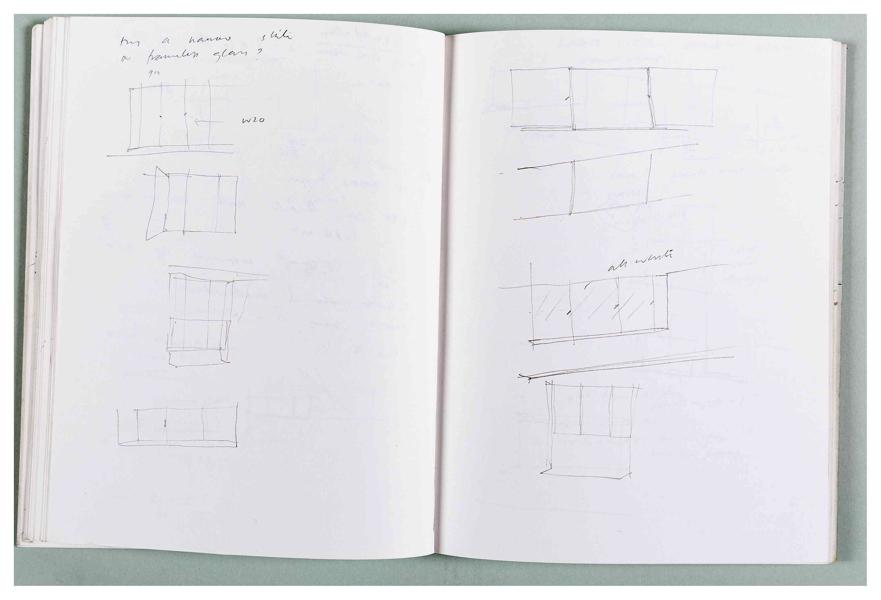 a narrow stile
or frameless glass?
W20
all white